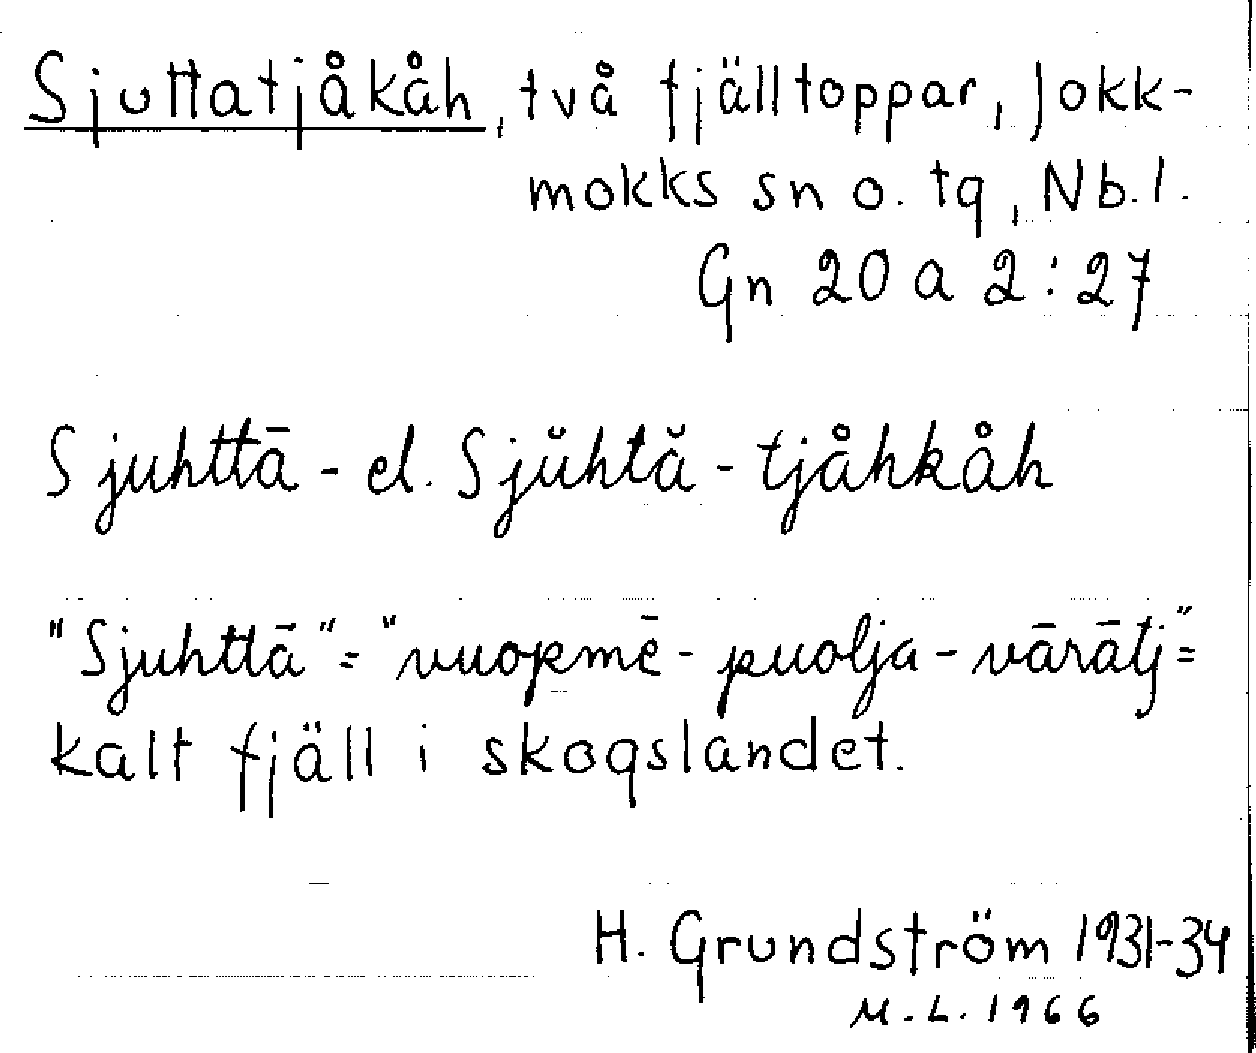 Sjuttatjåkåh, två fjälltoppar, Jokk-
mokks sn o. tg, Nb. l.
Gn 20 a 2:27
Sjuhttā- el. Sjŭhtă-tjåhkåh
"Sjuhttā" = "vuopmē-puolja-vārātj" =
kalt fjäll i skogslandet.
H. Grundström 1931-34
M.L. 1966